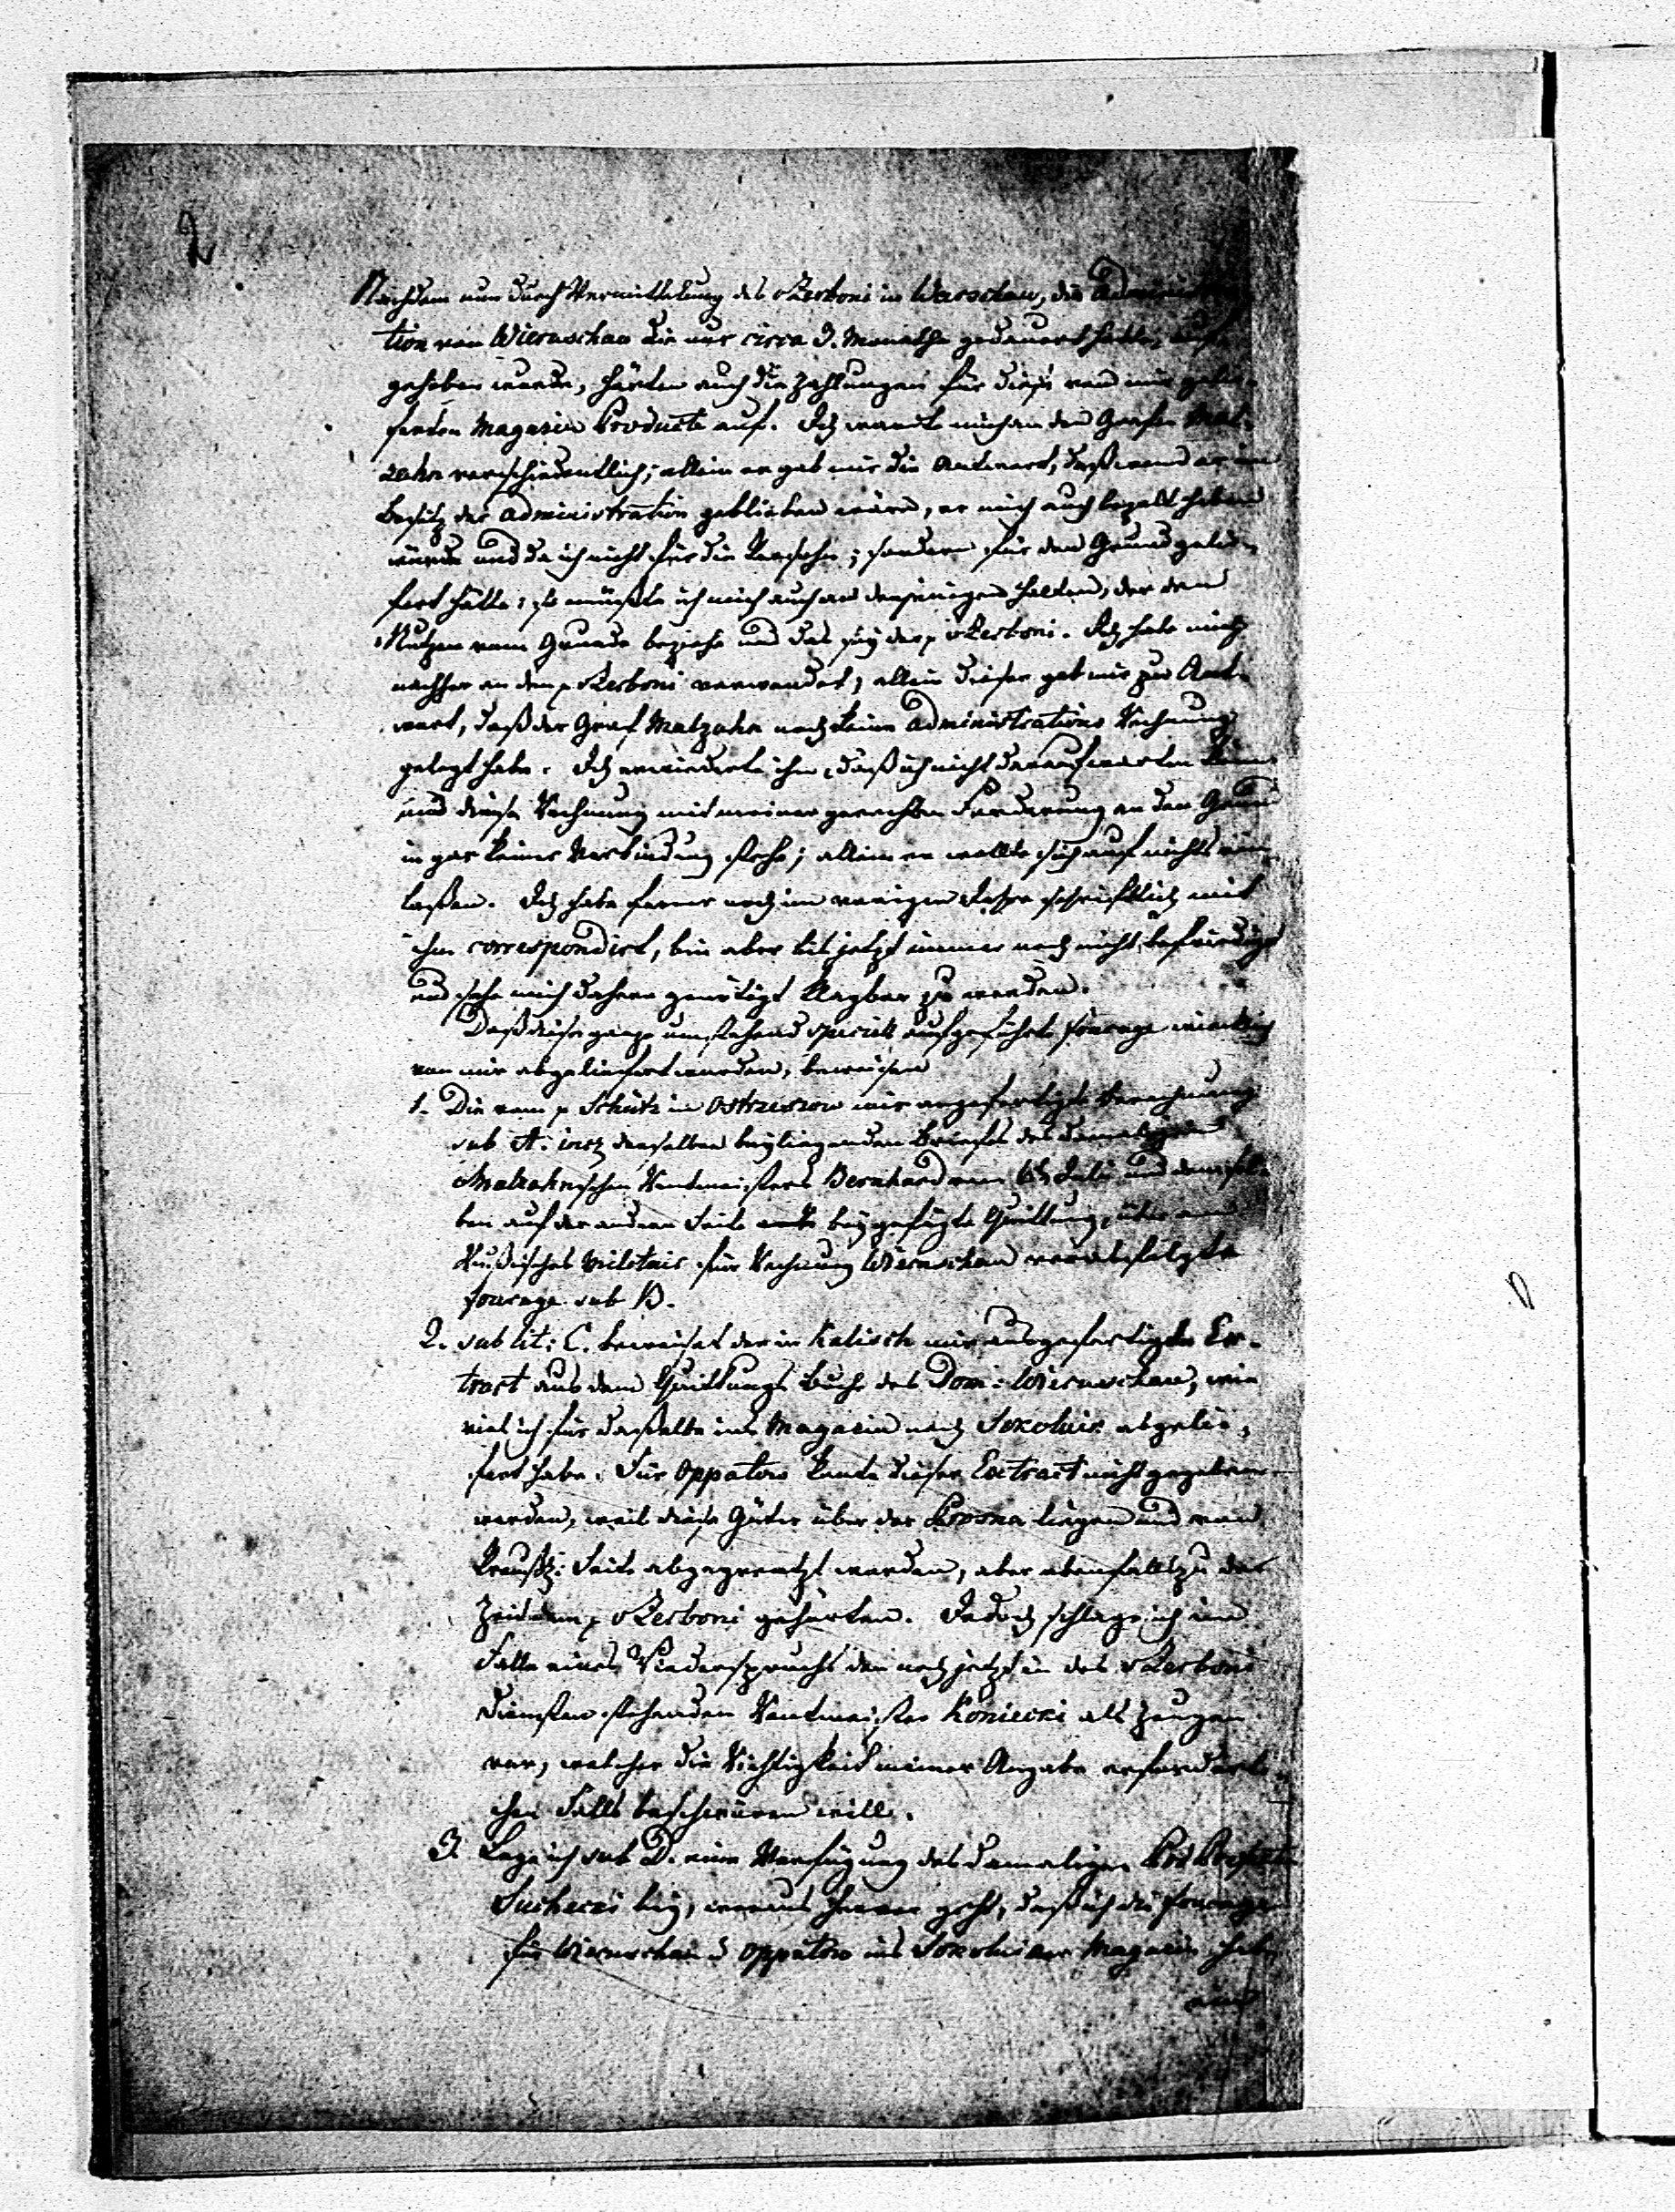 2
Nachdem nun durch Vermittelung des vZerboni in Warschau, die Administra
tion von Wieruschau die nur circa 3. Monathe gedauert hatte, auf
gehoben wurde, hörten auch die Zahlungen für diese von mir gelie
ferten Magazin Producte auf. Ich wandte mich an den Grafen Mal
zahn verschiedentlich; allein er gab mir die Antwort, daß wenn er im
Besitz der Administration geblieben wäre, er mich auch bezalt haben
würde und da ich nicht für die Persohn; sondern für den Grund gelie
fert hätte: so müßte ich mich auch an denjenigen halten, der den
Nutzen vom Grunde beziehe und das sey der p vZerboni. Ich habe mich
nachher an den p vZerboni verwendet, allein dieser gab mir zur Ant
wort, daß der Graf Malzahn noch keine Administrations Rechnung
gelegt habe. Ich erwiederte ihm, daß ich nicht darauf warten könn
und diese Rechnung mit meiner gerechten Forderung an den Grund
in gar keiner Verbindung stehe; allein er wollte sich auf nichts ein
laßen. Ich habe ferner noch im vorigen Jahre schriftlich mit
ihm correspondirt, bin aber bis jetzt immer noch nicht befriedigt
und sehe mich dahero genötigt klagbar zu werden.
Daß diese ganze umstehend speciell aufgeführte fourage würcklich
von mir abgeliefert worden, beweisen
1. Die vom p Schütz in Ostrzeszow mir angefertigte Berechnung
sub A. derselben beyliegenden Briefes des damaligen
Malzahnschen Rentmeisters Bernhard vom Juli und demsel
ben auf der andern Seite beygefügte Quittung, über am
Rußisches Militair für Rechnung Wieruschau verabfolgte
fourage sub B.
2. sub lit: C. beweiset der in Kalisch mir ausgefertigte Ex-
tract aus dem Quittungs Buche des Dom: Wieruschau, wie
viel ich für daßelbe ins Magazin nach Sokolnik abgelie,
fert habe. Für Oppatow konte dieser Extract nicht gegeben
werden, weil diese Güter über der Prosna liegen und von
Preußl: Seite abgegrentzt worden, aber ebenfalls zu der
Zeit dem p vZerboni gehörten. Jedoch schlage ich im
Falle eines Wiederspruchs den noch jetzt in des vZerboni
Diensten stehenden Rentmeister Koniecki als Zeugen
vor, welcher die Richtigkeit meiner Angabe erforderli
chen Falls beschwören will.
3. Lege ich sub D. eine Verfügung des damaligen
Suchecki bey, woraus hervor geht, daß ich die fourage
für Wieruschau u Oppatow ins Sokolniker Magazin habe